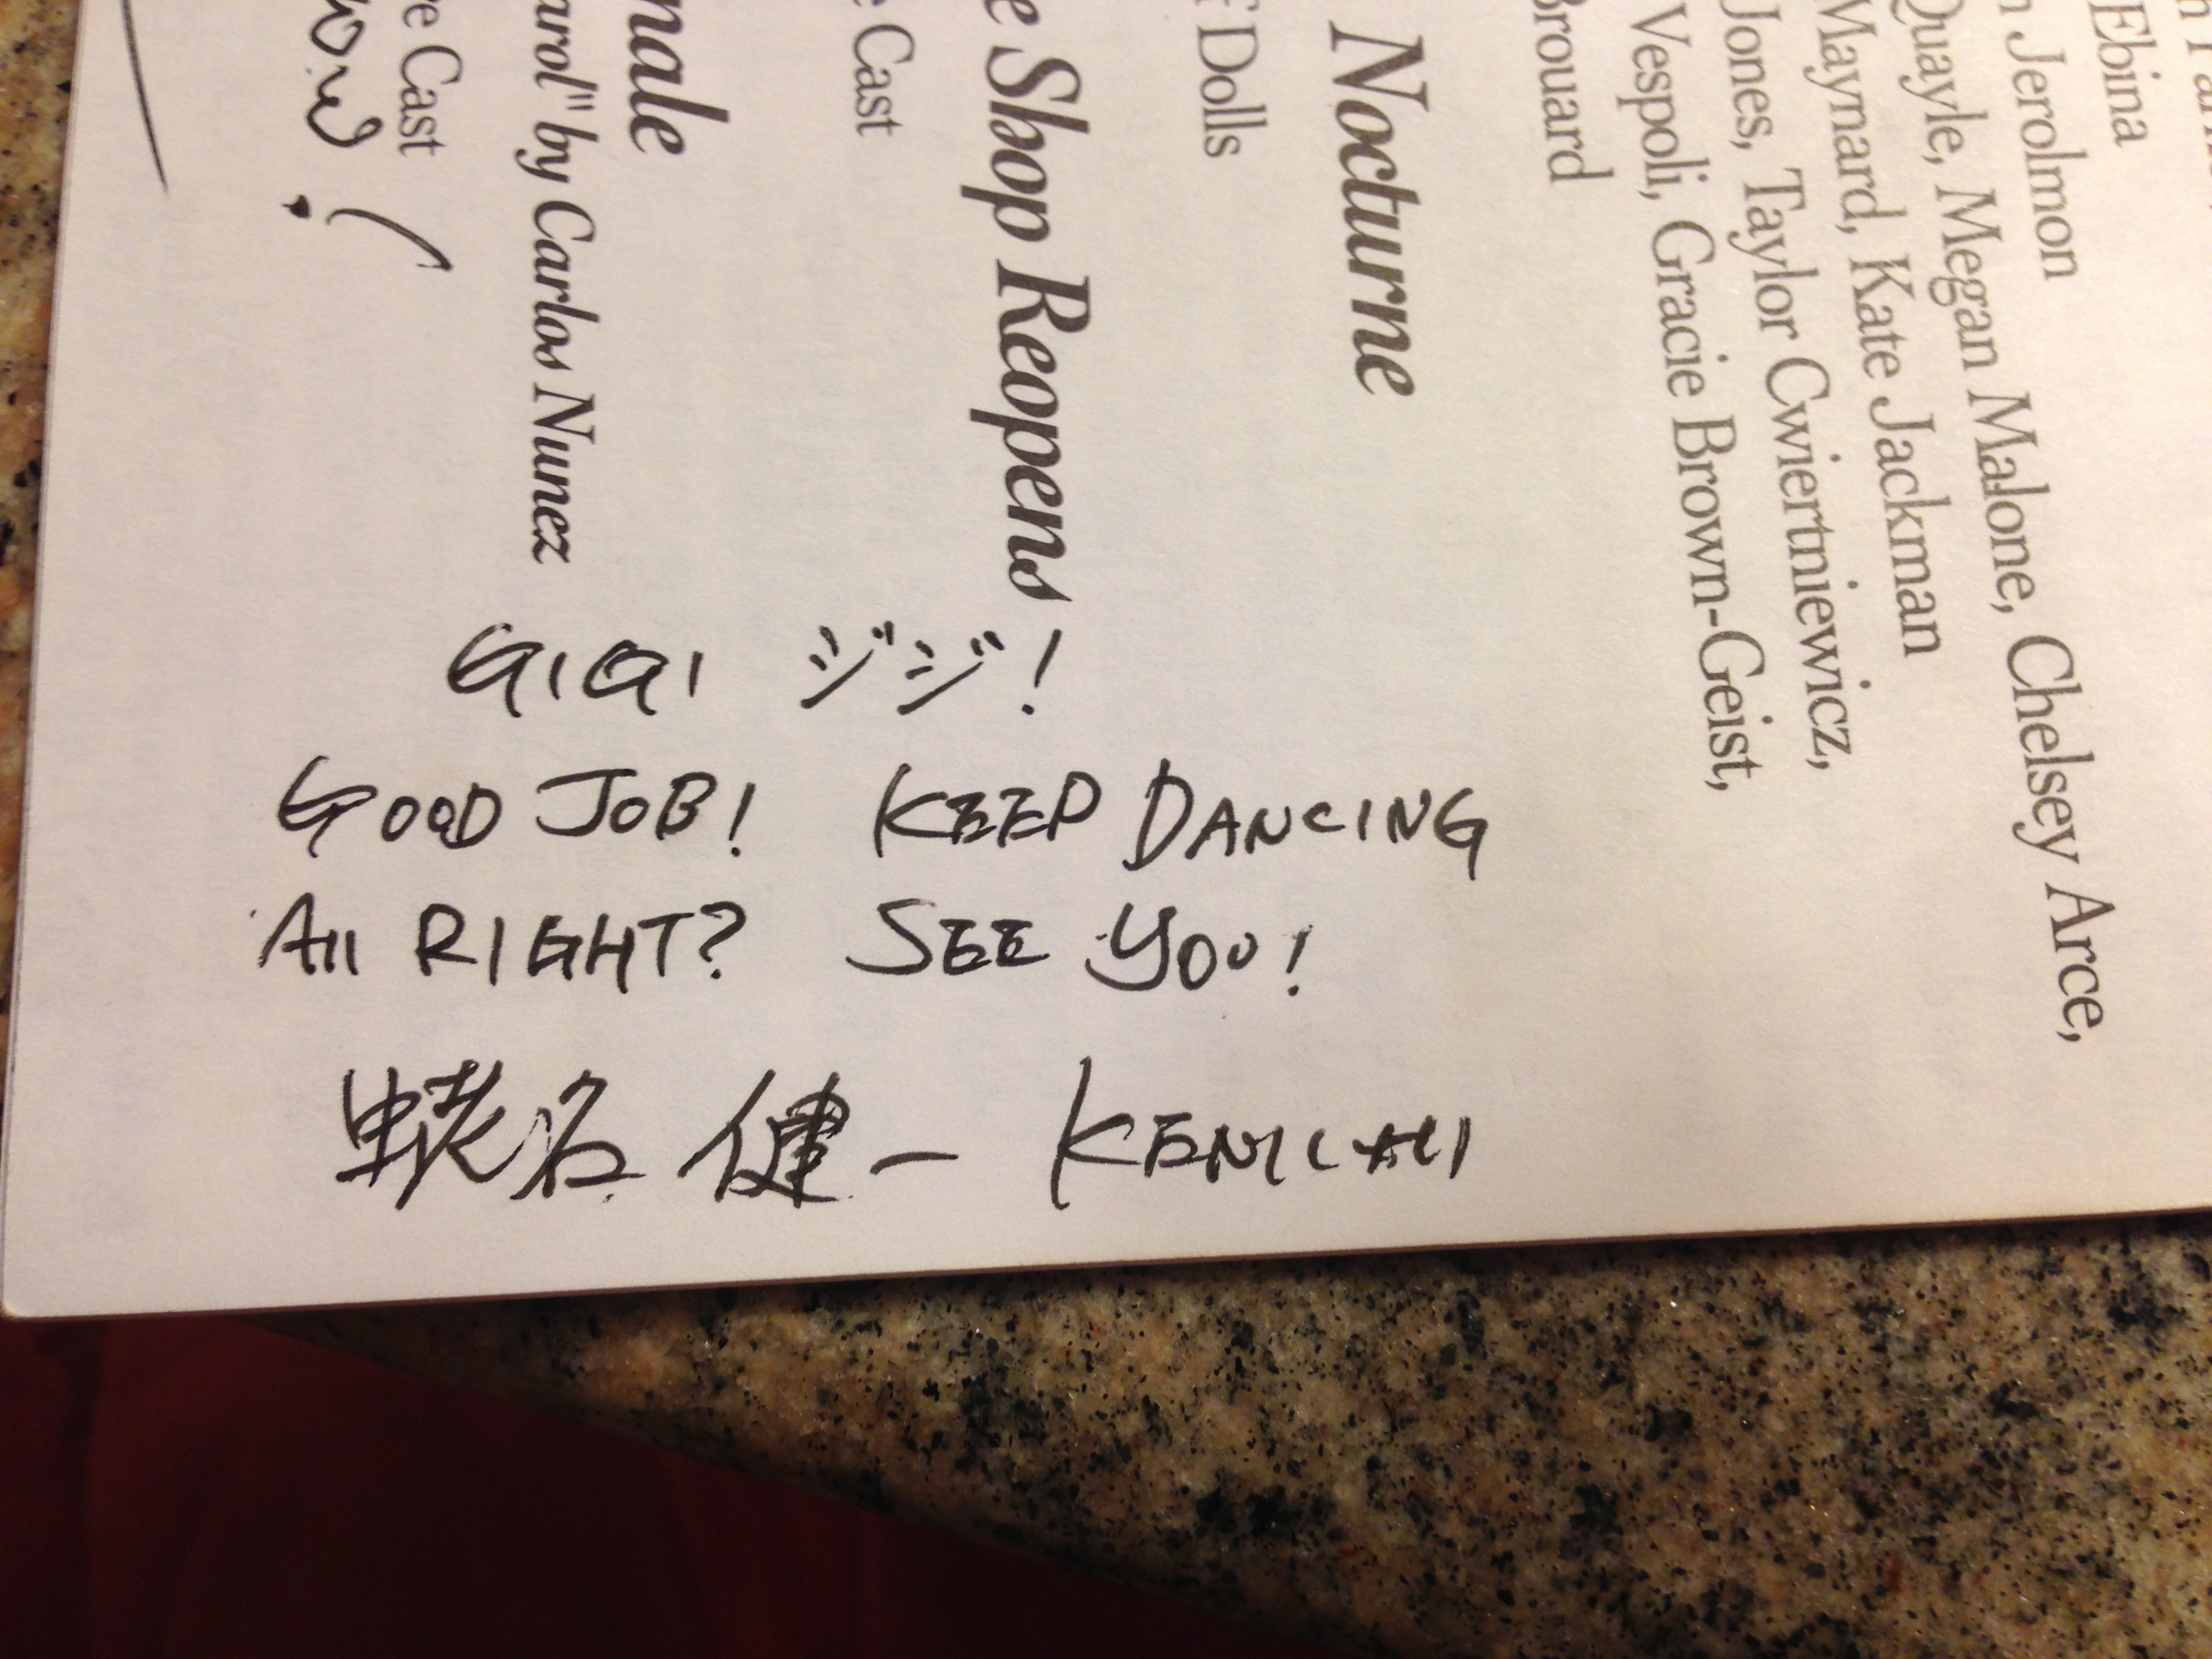 Ebina
Jerolmon
Quayle, Megan Malone, Chelsey Arce,
Maynard, Kate Jackman
Jones, Taylor Cwiertniewicz,
Vespoli, Gracie Brown-Geist,
Brouard
Nocturne
Dolls
e Shop Reopens
e Cast
nale
arol" by Carlos Nunez
re Cast
GIGI ジジ!
GOOD JOB! KEEP DANCING
All RIGHT? SEE YOU!
蛯名 健一 KENICHI